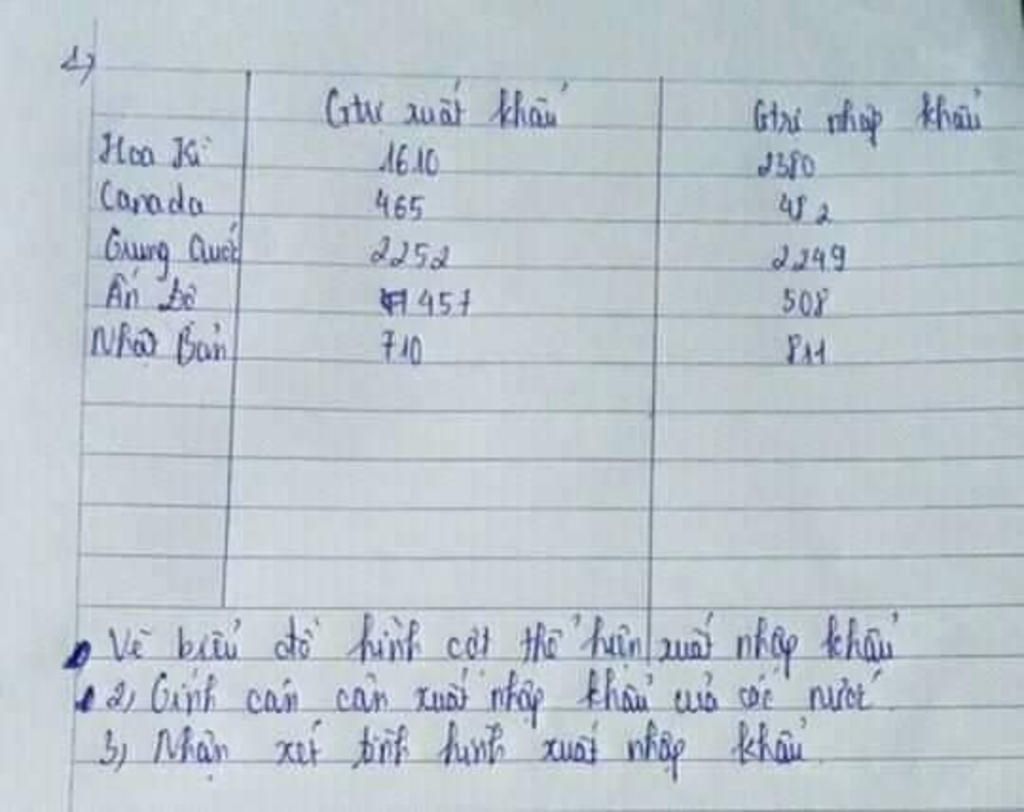 1)
Gtrị xuất khẩu Gtrị nhập khẩu
Hoa Kì 1610 2380
Canada 465 482
Trung Quốc 2252 2249
Ấn Độ 457 508
Nhật Bản 710 811
Vẽ biểu đồ hình cột thể hiện xuất nhập khẩu
2) Tính cán cân xuất nhập khẩu của các nước
3) Nhận xét tình hình xuất nhập khẩu